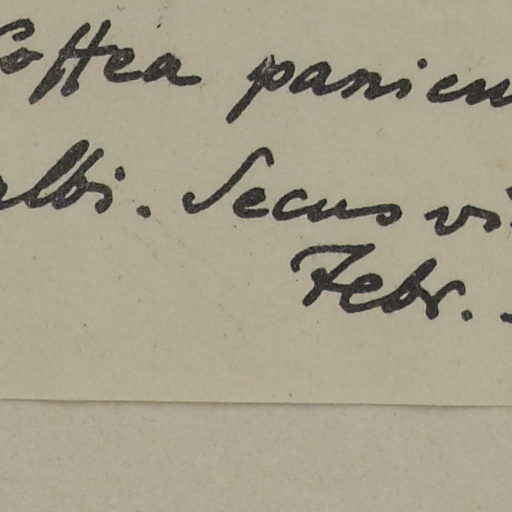 Coffea panicu
albi. Secus vi
Febr.